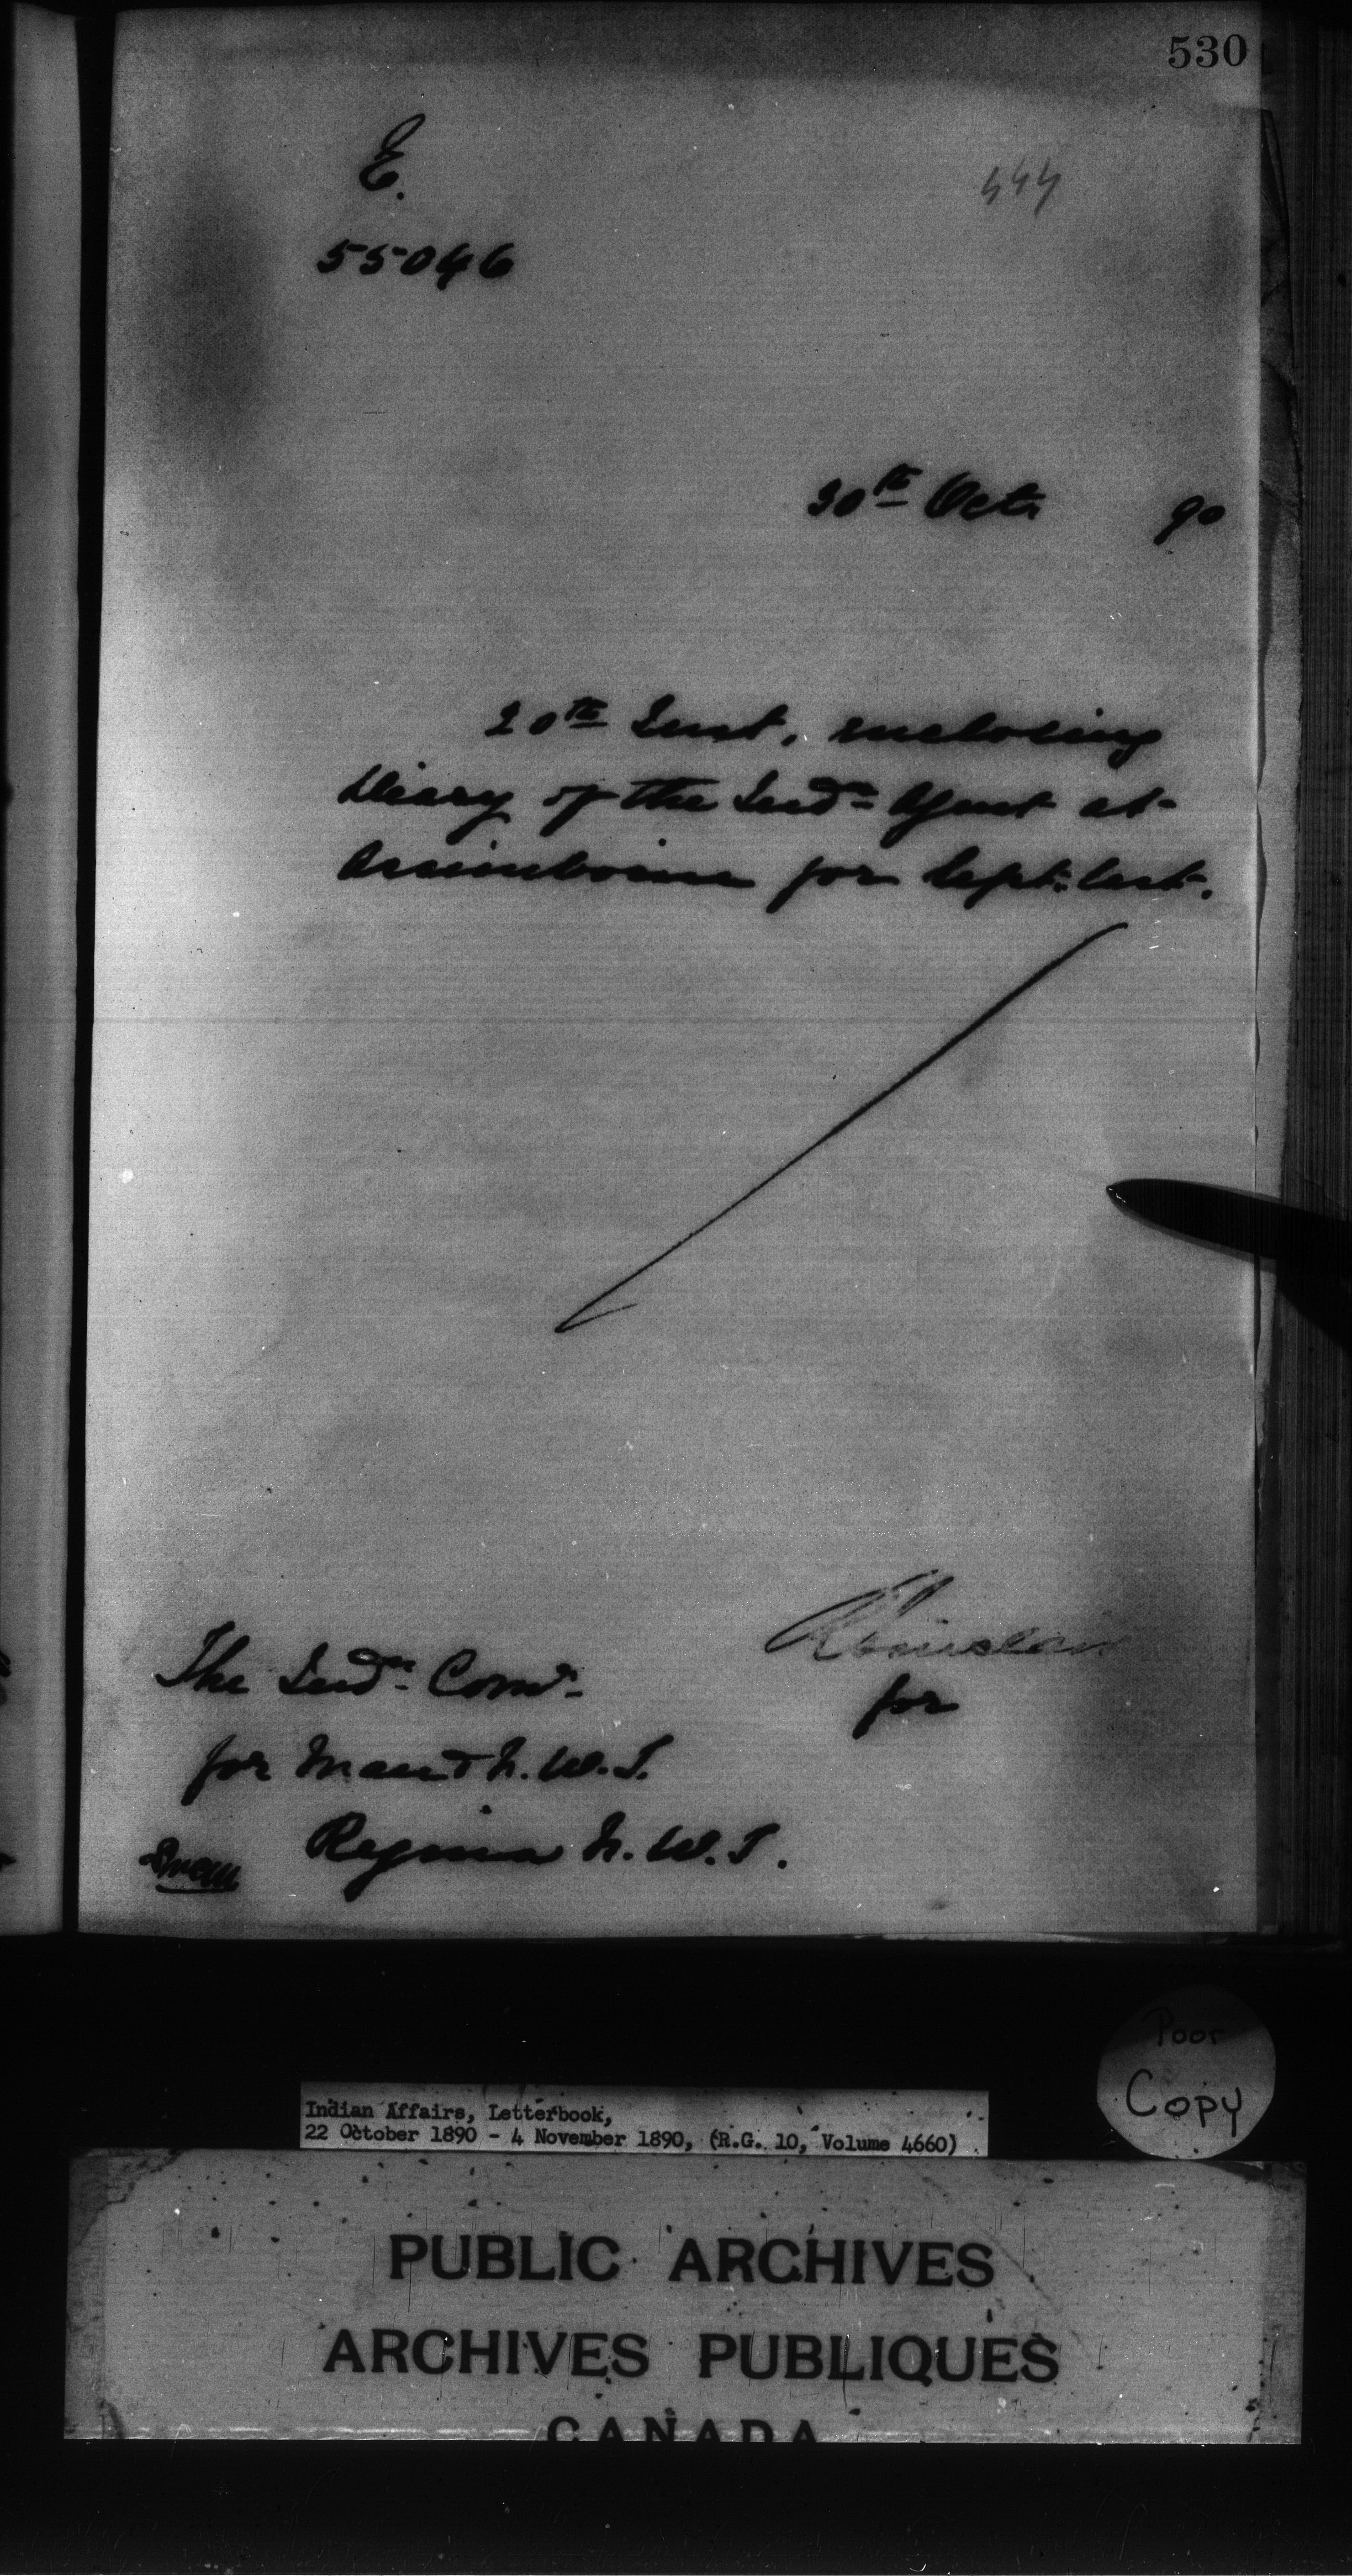 530
E.
444
55046
30th Octr 90
20th Inst, enclosing
Diary of the Indn Agent at
Assiniboine for Sept: last.
R Sinclair
for
The Indn Comr
for Man & N. W. T.
Regina N. W. T.
Poor
Copy
Indian Affairs, Letterbook,
22 October 1890 - 4 November 1890, (R.G. 10, Volume 4660)
PUBLIC ARCHIVES
ARCHIVES PUBLIQUES
CANADA